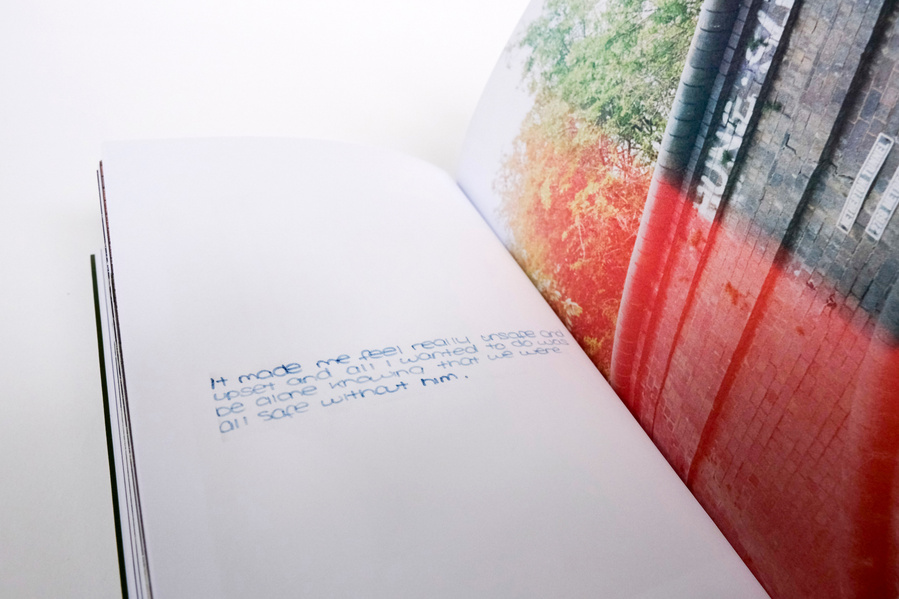 It made me feel really unsafe and
upset and all I wanted to do was
be alone knowing that we were
all safe without him.